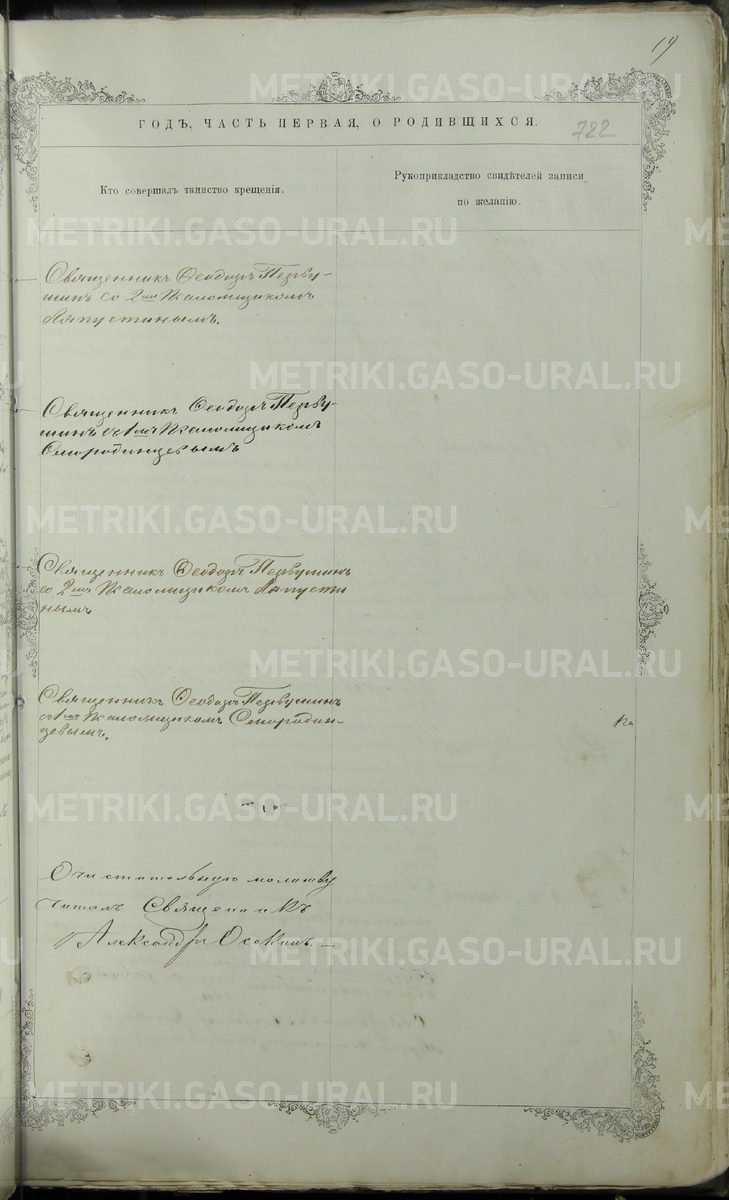 19
ГОДЪ, ЧАСТЬ ПЕРВАЯ, О РОДИВШИХСЯ.
722
Кто совершалъ таинство крещенія.
Рукоприкладство свидѣтелей записи
по желанію.
Священникъ Ѳеодоръ Перву-
шинъ со 2мъ Псаломщикомъ
Ляпустинымъ.
Священникъ Ѳеодоръ Перву-
шинъ съ 1мъ Псаломщикомъ
Смородинцевымъ
Священникъ Ѳеодоръ Первушинъ
со 2мъ Псаломщикомъ Ляпусти
нымъ
Священникъ Ѳеодоръ Первушинъ
съ 1мъ Псаломщикомъ Смородин-
цевымъ.
Очистительную молитву
читалъ Священникъ
Александръ Осокинъ.
METRIKI.GASO-URAL.RU